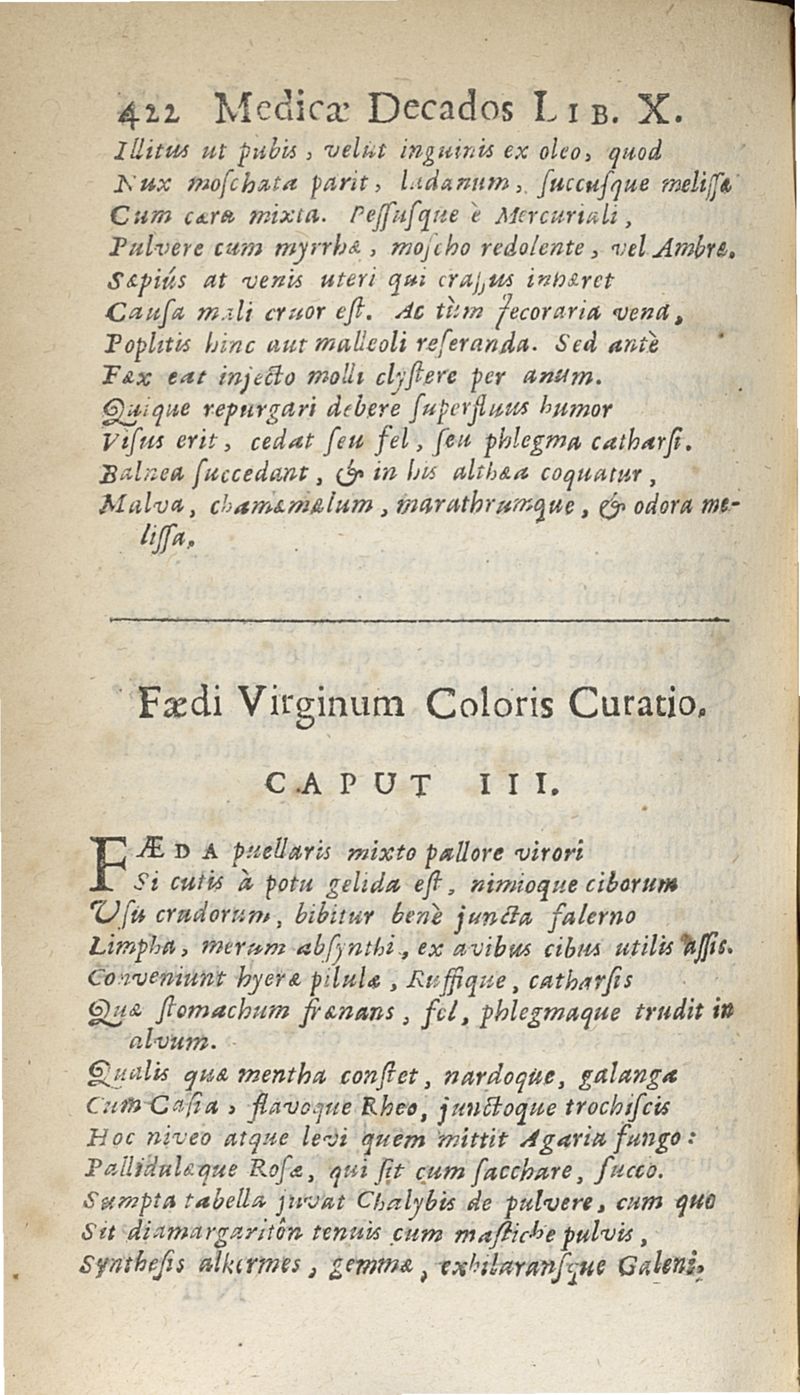 422 Medicæ Decados LIB. X.
Illitus ut pubis, velut inguinis ex oleo, quod
Nux moſchata parit, ladanum, ſuccuſque meliſſæ
Cum cæra mixta. Peſſuſque è Mercuriali,
Pulvere cum myrrhæ, moſcho redolente, vel Ambræ.
Sæpiús at venis uteri qui craſſus inhæret
Cauſa mali cruor eſt. Ac tùm Jecoraria vena,
Poplitis hinc aut malleoli reſeranda. Sed antè
Fæx eat injecto molli clyſtere per anum.
Quique repurgari debere ſuperfluus humor
Viſus erit, cedat ſeu fel, ſeu phlegma catharſi.
Balnea ſuccedant, & in his althæa coquatur,
Malva, chamæmælum, marathrumque, & odora me-
liſſa.
Fædi Virginum Coloris Curatio.
CAPUT III.
FÆDA puellaris mixto pallore virori
Si cutis à potu gelida eſt, nimioque ciborum
Uſu crudorum, bibitur benè juncta falerno
Limpha, merum abſynthi, ex avibus cibus utilis aſſis.
Conveniunt hyeræ pilulæ, Ruffique, catharſis
Quæ ſtomachum frænans, fel, phlegmaque trudit in
alvum.
Qualis quæ mentha conſtet, nardoque, galanga
Cum Caſia, flavoque Rheo, junctoque trochiſcis
Hoc niveo atque levi quem mittit Agaria fungo:
Pallidulæque Roſæ, qui ſit cum ſacchare, ſucco.
Sumpta tabella juvat Chalybis de pulvere, cum quo
Sit diamargaritôn tenuis cum maſtiche pulvis,
Syntheſis alkermes, gemmæ, exhilaranſque Galeni,